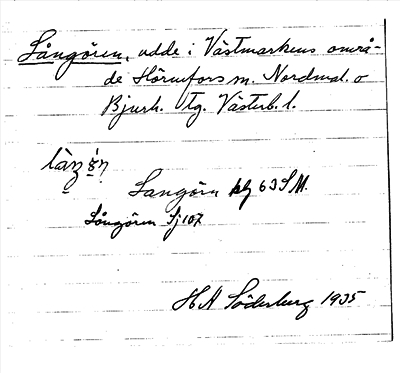 Långören, udde i Västmarkens områ-
de Hörnefors m. Nordmal. o
Bjurh. tg. Västerb. l.
Langörn 63 S M.
Långören Sj 107
H A Söderberg 1935